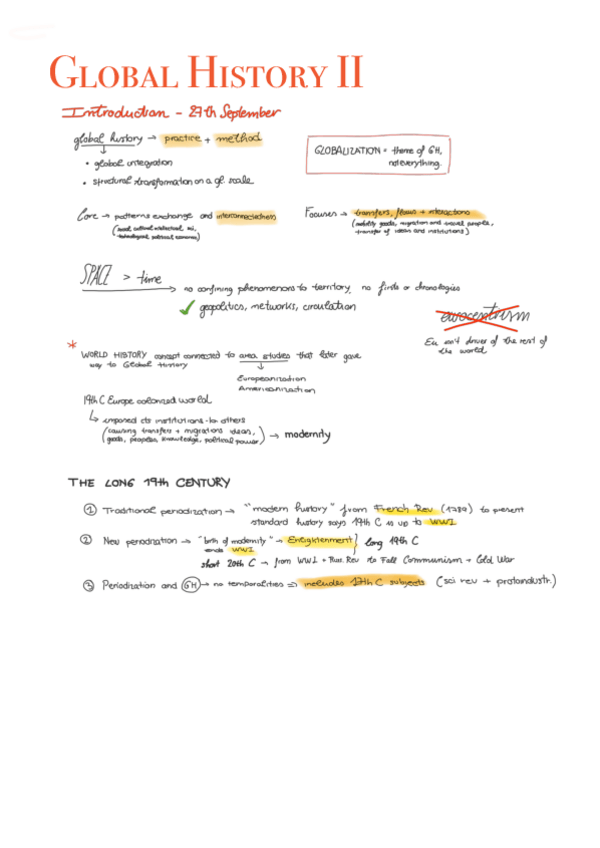 GLOBAL HISTORY II
Introduction - 27th September
global history → practice + method
• global integration
• structural transformation on a gl. scale
GLOBALIZATION = theme of GH,
not everything.
Core → patterns exchange and interconnectedness
technological, political, economic)
Focuses → transfers, flows + interactions
(mobility goods, migration and travel people,
transfer of ideas and institutions)
SPACE > time
→ no confining phenomenons to territory, no firsts or chronologies
✓ geopolitics, networks, circulation
eurocentrism
Eu isn't driver of the rest of
the world
* WORLD HISTORY concept connected to area studies that later gave
way to Global History
Europeanization
Americanization
19th C Europe colonized world
↳ imposed its institutions to others
(causing transfers + migrations ideas,
goods, peoples, knowledge, political power) → modernity
THE LONG 19th CENTURY
① Traditional periodization → "modern history" from French Rev (1789) to present
standard history says 19th C is up to WW1
② New periodization → "birth of modernity" → Enlightenment } long 19th C
ends WW1
short 20th C → from WW1 + Russ. Rev to Fall Communism + Cold War
③ Periodization and GH → no temporalities => includes 17th C subjects (sci rev + protoindustr.)